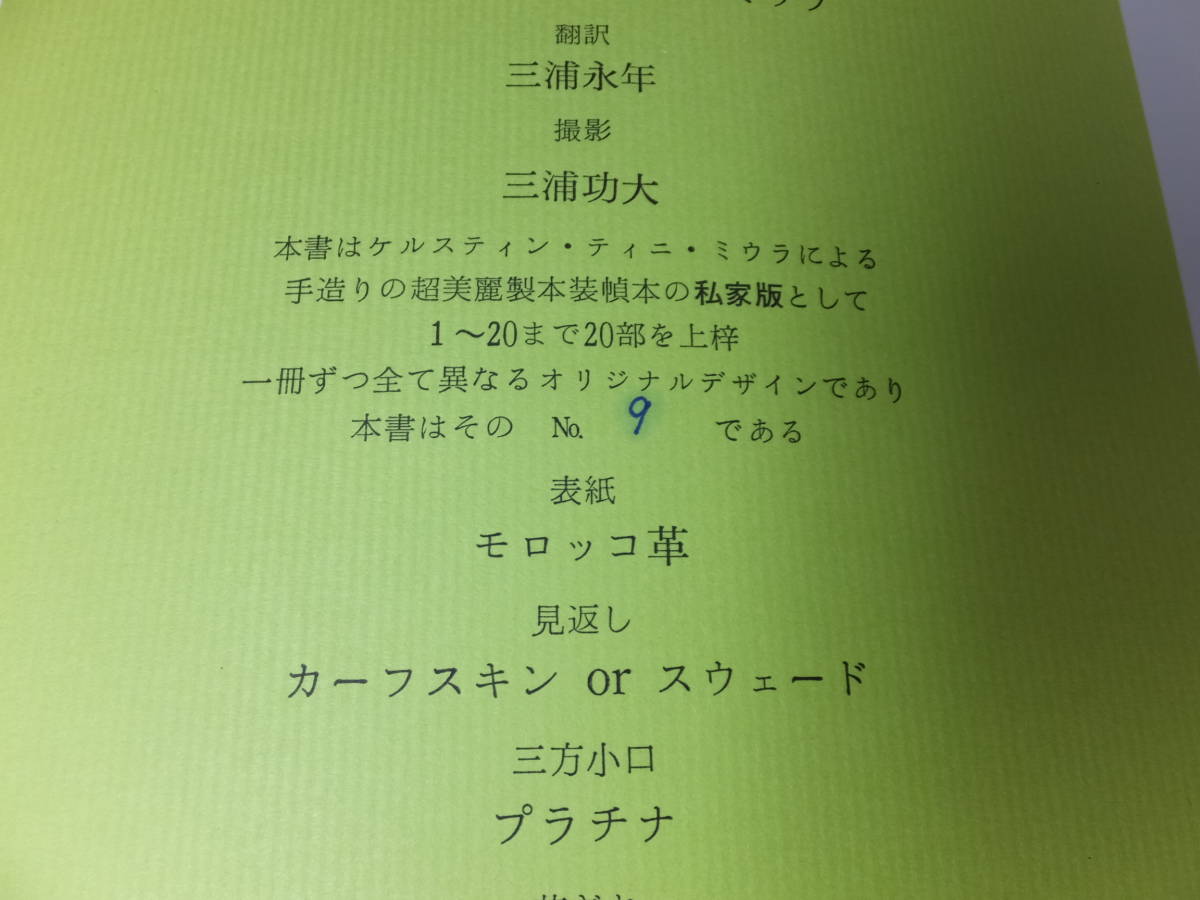 翻訳
三浦永年
撮影
三浦功大
本書はケルスティン・ティニ・ミウラによる
手造りの超美麗製本装幀本の私家版として
1〜20まで20部を上梓
一冊ずつ全て異なるオリジナルデザインであり
本書はその No. 9 である
表紙
モロッコ革
見返し
カーフスキン or スウェード
三方小口
プラチナ